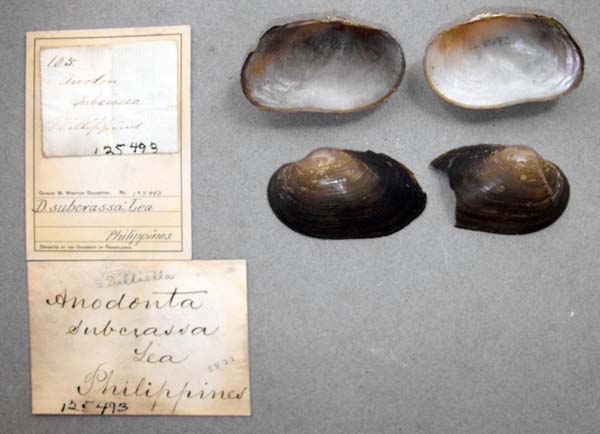 105.
Anodon
subcrassa
Philippines
125493
CHARLES M. WHEATLEY COLLECTION. No. 125493
D. subcrassa Lea
Philippines
DEPOSITED BY THE UNIVERSITY OF PENNSYLVANIA.
= Dalliella
Anodonta
subcrassa
Lea
Philippines
125493
125493